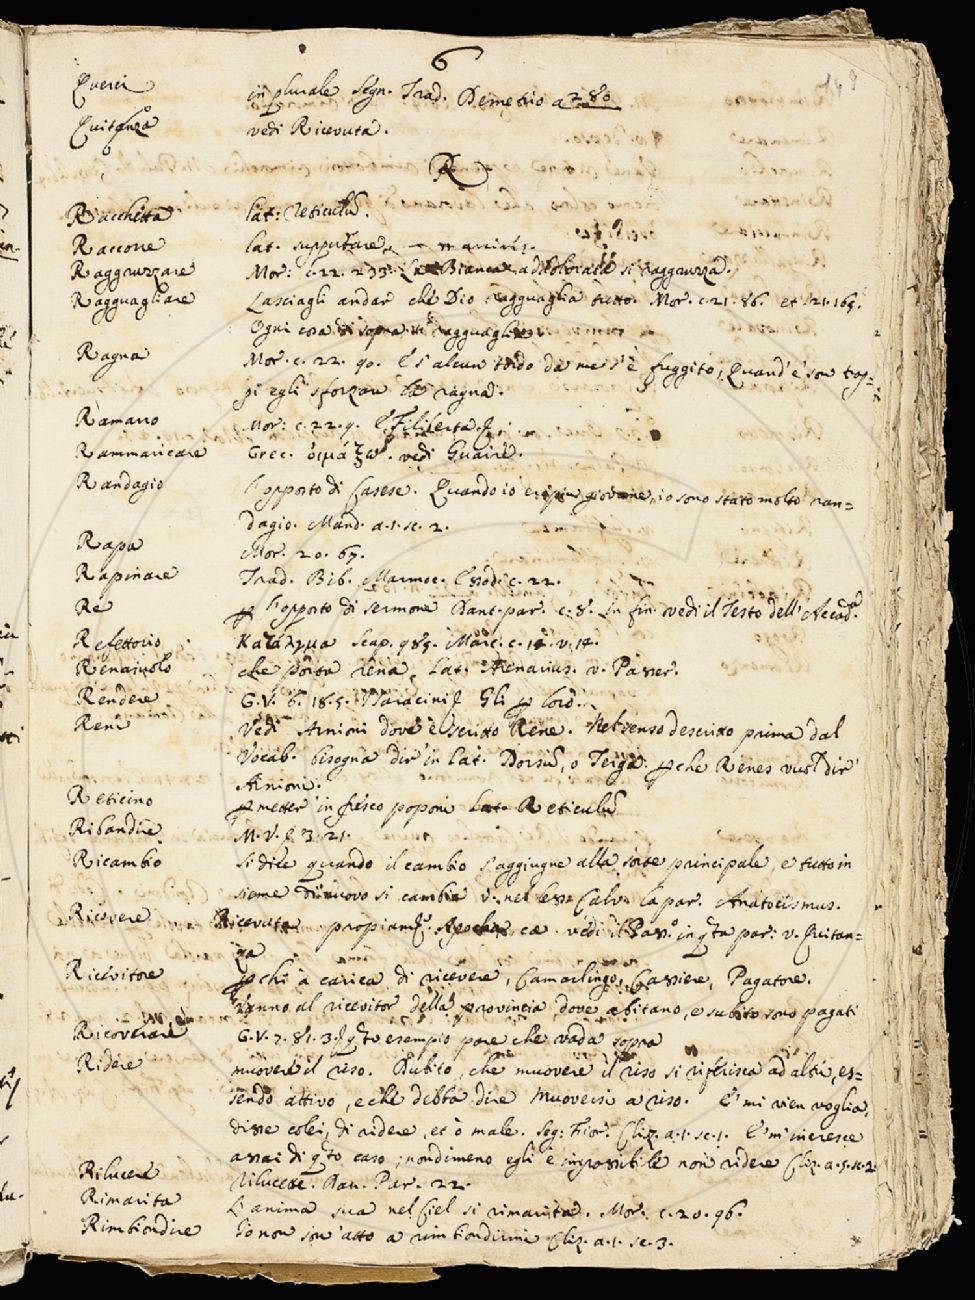 6
149
Querci in plurale Segn. Trad. Demetrio a 280
Quitanza vedi Ricevuta.
R
Racchetta lat: reticulũ.
Raccorre lat. supputare,
Raggruzzare Mor: c. 22. La Bianca addolorata si raggruzza.
Ragguagliare Lasciagli andar che Dio ragguaglia tutto. Mor. c. 21. 86. et 21. 165.
Ogni cosa di sopra si ragguaglia
Ragna Mor. c. 22. 90. E s'alcun tordo da me s'è fuggito; Quand'e' son trop=
pi egli sforzan la ragna.
Ramarro Mor: c. 22. 9.
Rammaricare Grec. οιμάζω. vedi Guaire.
Randagio l'opposto di Casese. Quando io ero più giovane, io sono stato molto ran=
dagio. Mand. a. 1. sc. 2.
Rapa Mor. 20. 67.
Rapinare Trad. Bib. Marmoc. Esod. c. 22.
Re ꝑ l'opposto di sermone Dant. par. c. 8. in fin. vedi il Testo dell'Accad.ª
Refettorio Κατάλυμα Scap. 985. Marc. c. 14. v. 14.
Renaiuolo che porta rena, Lat. Arenarius. v. Passer.
Rendere G. V. 6. 18. 5. Gli ꝑ loro.
Reni Vedi Arnioni dove è scritto Rene. Nel senso descritto prima dal
Vocab. bisogna dir' in lat. Dorsũ, o Terga: ꝑche Renes vuol dir'
Arnioni.
Reticino ꝑ metter' in fresco poponi Lat. Reticulũ
Ribandire M. V. 3. 21.
Ricambio Si dice quando il cambio s'aggiugne alla sorte principale, e tutto in
sieme di nuovo si cambia v. nel less. Calv. la par. Anatocismus.
Ricevere Ricevuta propiam.ᵉ Apocha ca. vedi il Pass.º in q̃ta par: v. Quitan=
za
Ricevitore ꝑ chi à carica di ricevere, Camarlingo, Cassiere, Pagatore.
Vanno al ricevitor della provincia dove abitano, e subito sono pagati
Ricoverare G. V. 7. 81. 3. q̃to esempio pare che vada sopra
Ridere muovere il riso. Dubito, che muovere il riso si riferisca ad altri, es=
sendo attivo, e che debba dire Muoversi a riso. E' mi vien voglia,
disse colei, di ridere, et ò male. Seg: Fior. Cliz. a. 1. sc. 1. E' m'incresce
assai di q̃to caso; nondimeno egli è impossibile non ridere Cliz. a. 5. sc. 2.
Rilucere rilucere. Dan. Par. 22.
Rimarita L'anima sua nel Ciel si rimarita. Mor. c. 20. 96.
Rimbiondire Io non son atto a rimbiondirmi Cliz. a. 1. sc. 3.